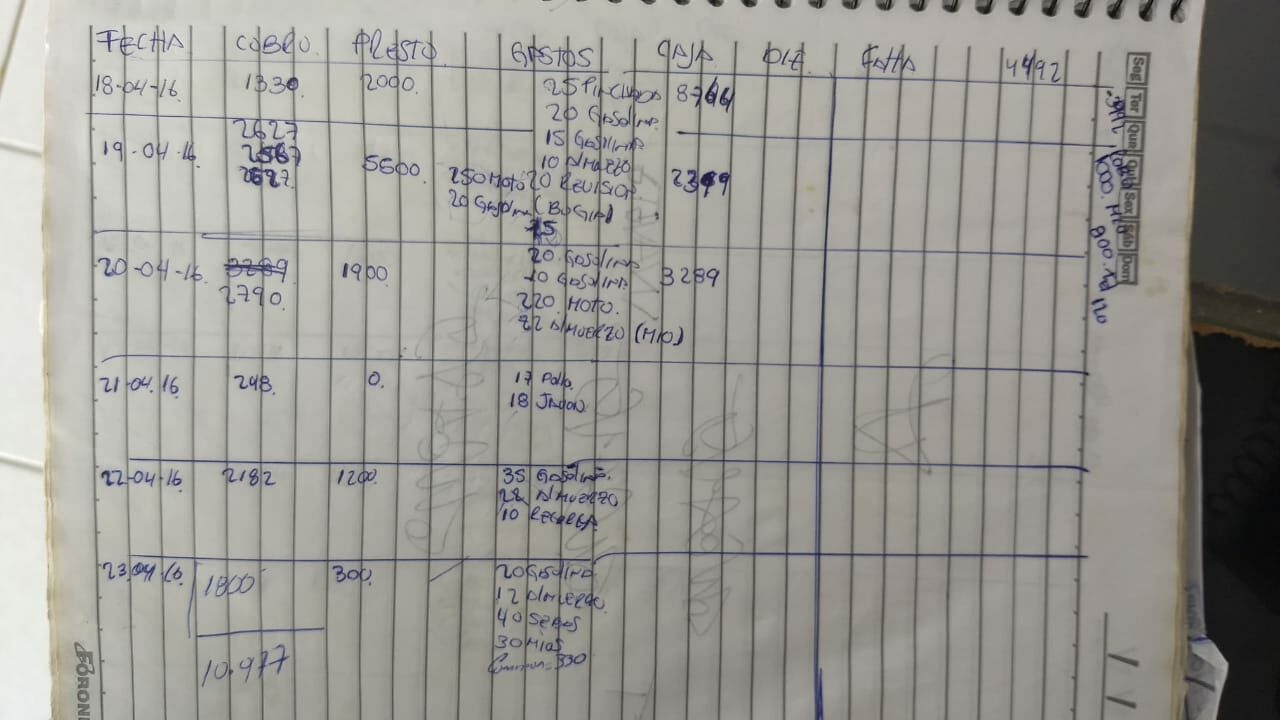 FECHA COBRO. PRESTO. GASTOS CAJA DIF. FALTA 4492
18-04-16. 1330 2000. 25 Pinchada 8744
20 Gasolina.
2627 15 Gasolina
19-04-16. 2567 5600. 10 Almuerzo
2627. 250 Moto 20 Revision 2369
20 Gasolina (Bugia)
15
20-04-16. 3289 1900 20 Gasolina 3289
2790. 20 Gasolina
220 Moto.
22 Almuerzo (Mio)
21-04.16. 248. 0. 17 Pollo.
18 Jabon
22-04-16. 2182 1200. 35 Gasolina.
28 Almuerzo
10 Recarga
23.04.16. 1800 300. 20 Gasolina.
12 Almuerzo.
40 Seros
30 Mios
10.977 330
Seg Ter Qua Qui Sex Sáb Dom
FORONI